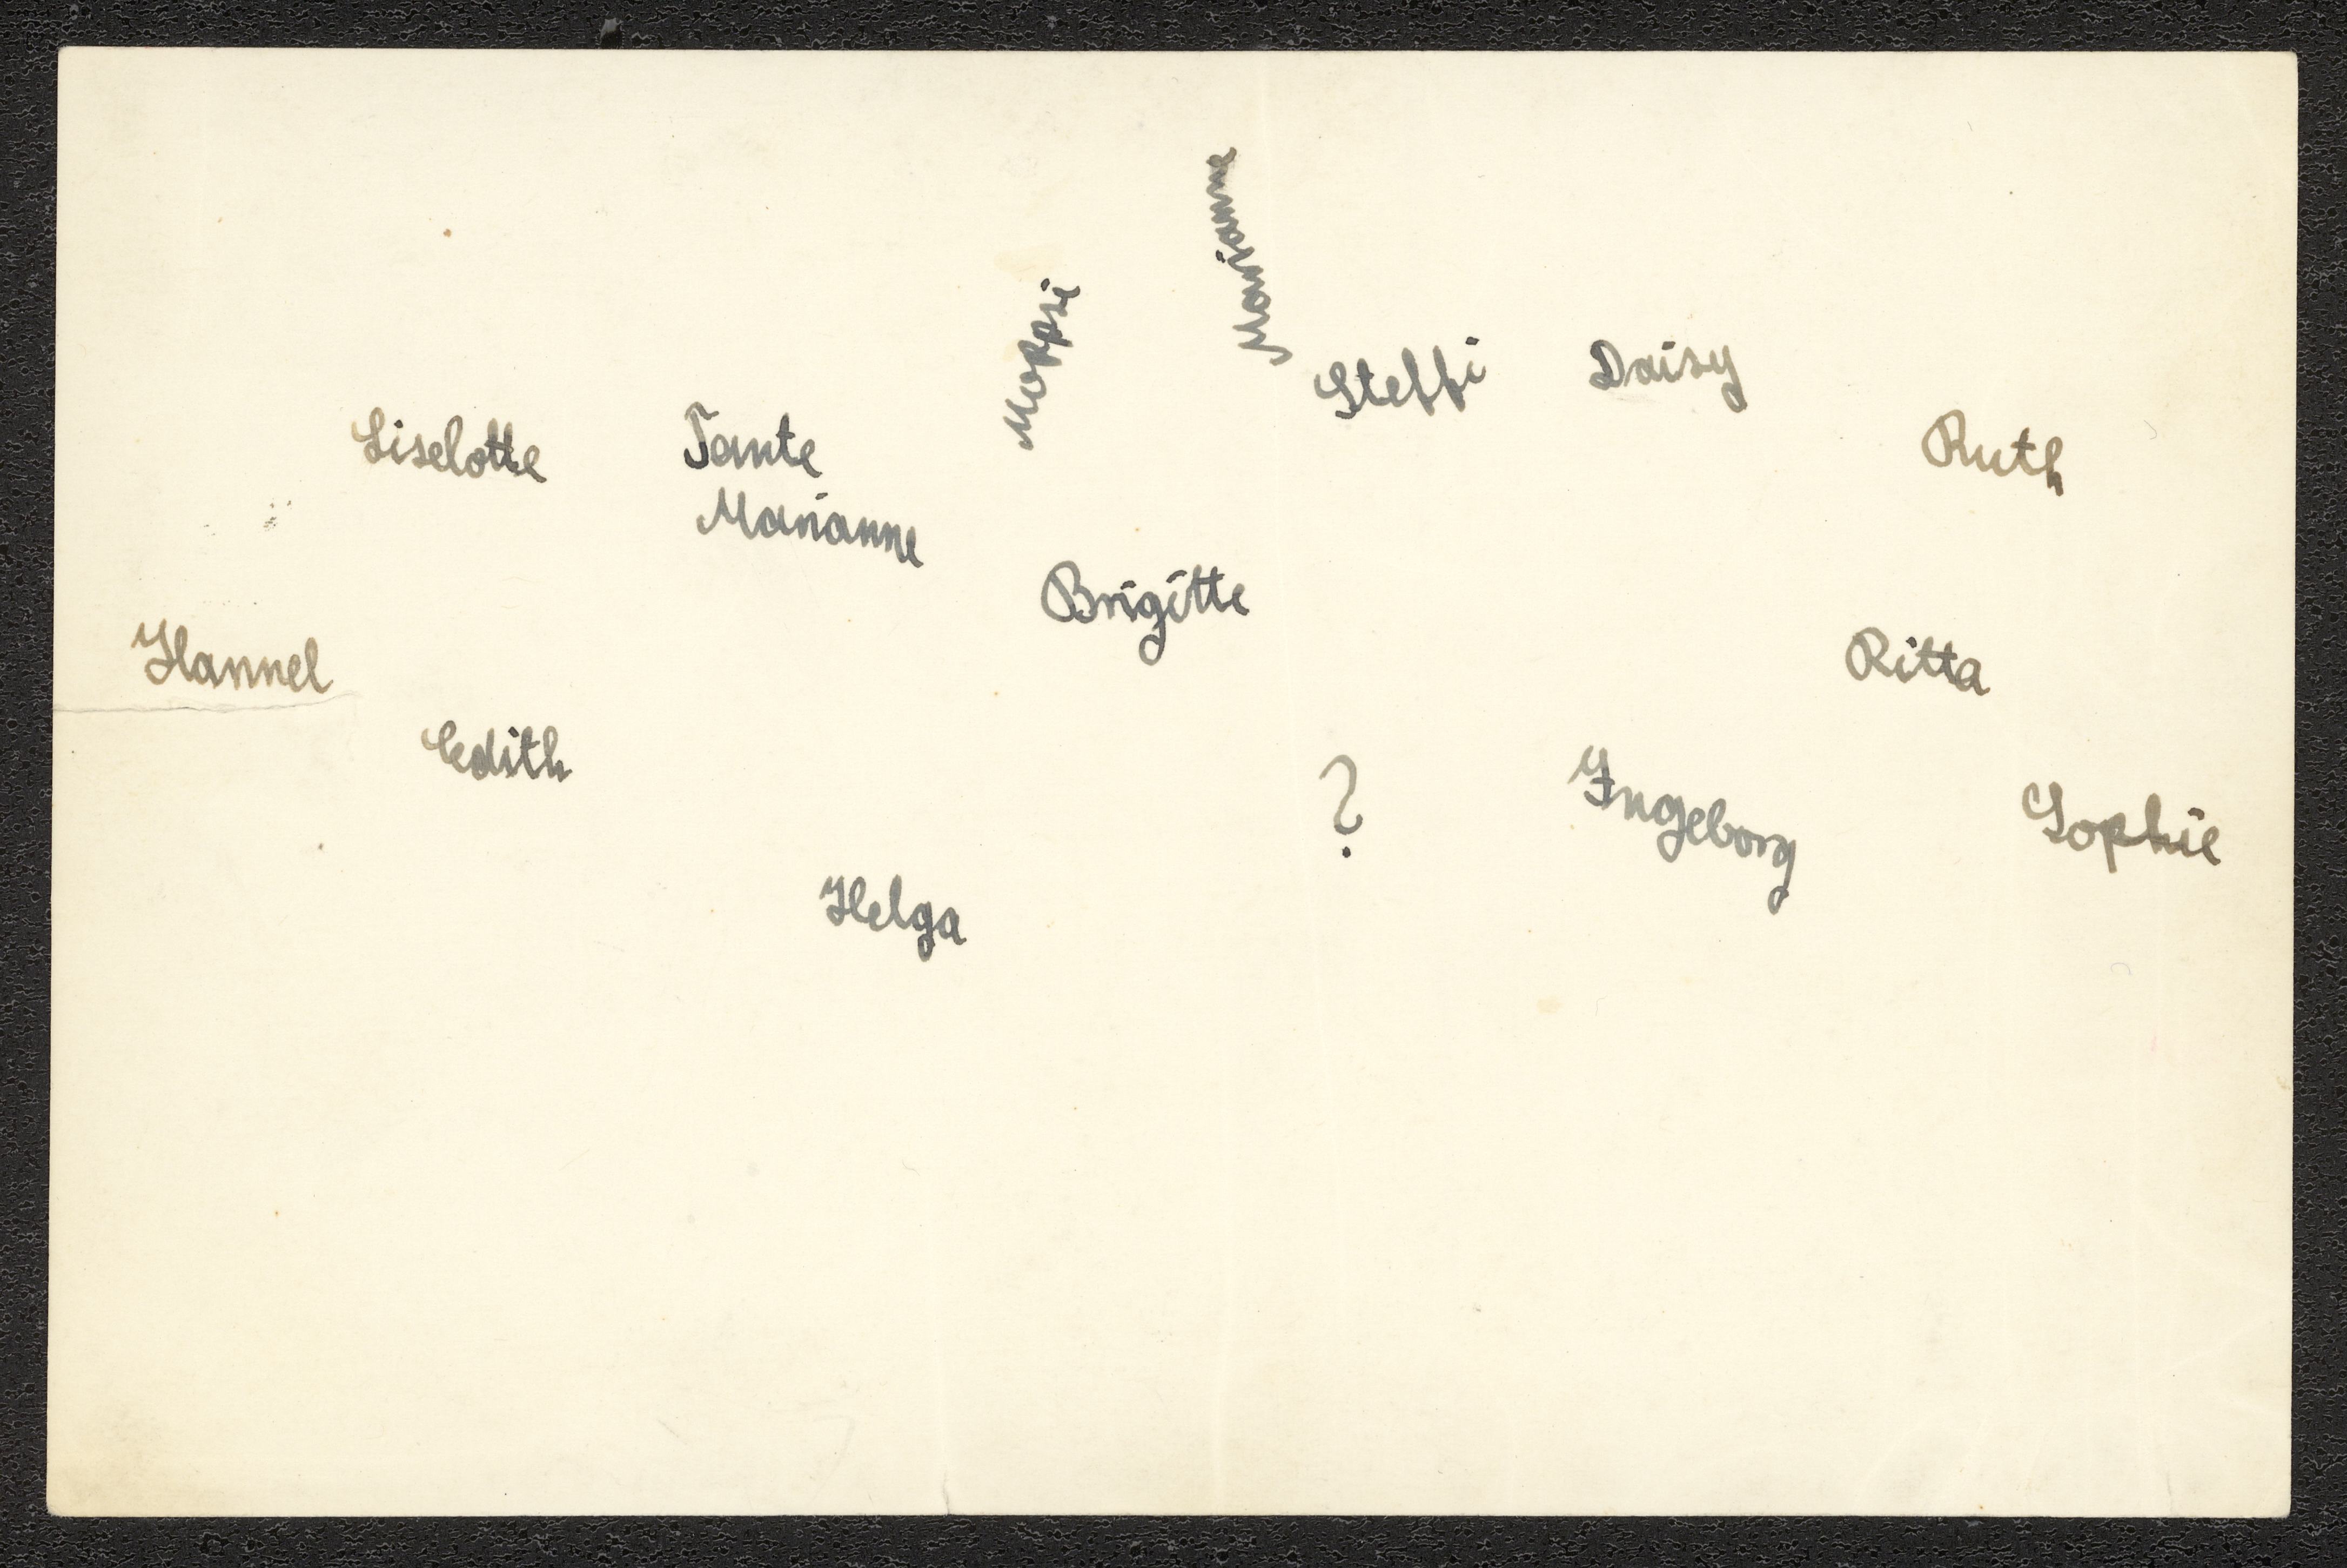 Marianne
Moppsi
Steffi
Daisy
Liselotte
Tante
Marianne
Ruth
Brigitte
Hannel
Ritta
Edith
?
Ingeborg
Sophie
Helga